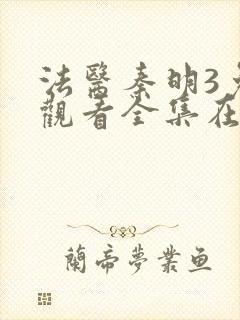 法醫秦明3
觀看全集在
蘭帝夢業魚